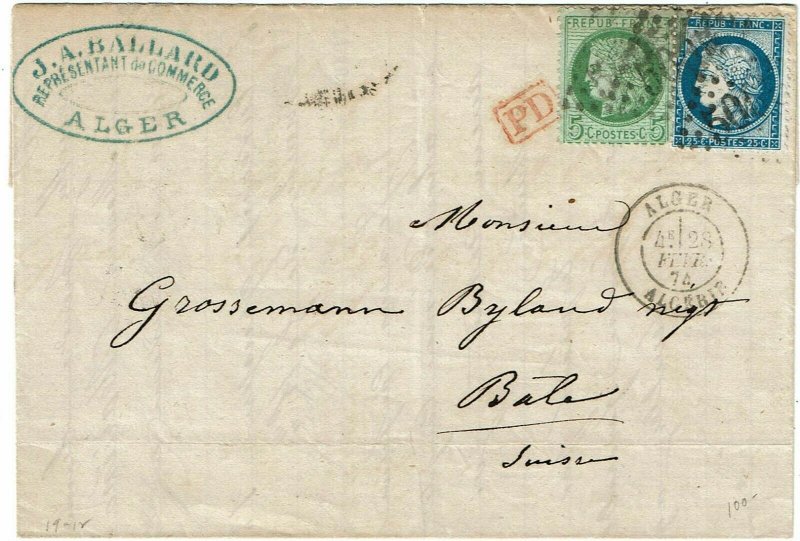 J. A. BALLARD
REPRÉSENTANT de COMMERCE
ALGER
REPUB. FRANC.
5 C. POSTES 5 C.
REPUB. FRANC.
25 C. POSTES 25 C.
PD
ALGER
28
FEVR.
74
ALGERIE
Monsieur
Grossemann Byland negt
Bâle
Suisse
19-12
100-